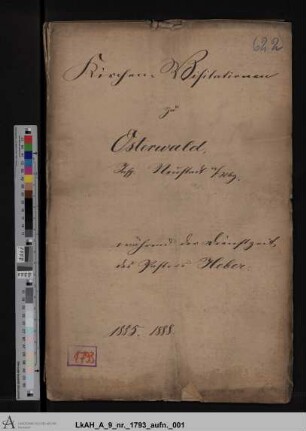 622
Kirchen-Visitationen
zu
Osterwald.
Neustadt a/Rbg.
während der Dienstzeit
des Pastors Heber.
1885. 1888.
1793
LkAH_A_9_nr._1793_aufn._001